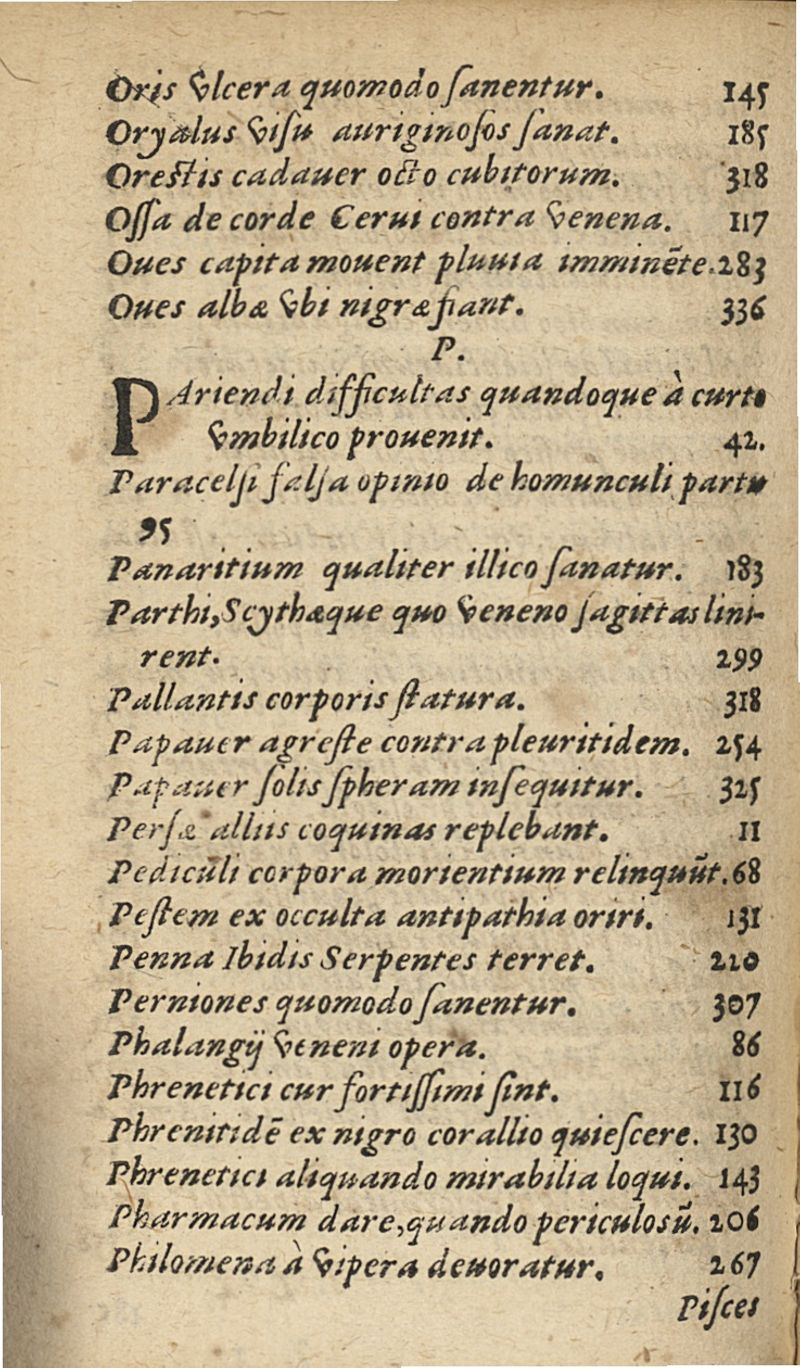 Oris vlcera quomodo ſanentur. 145
Oryalus viſu auriginoſos ſanat. 185
Oreſtis cadauer octo cubitorum. 318
Oſſa de corde Cerui contra venena. 117
Oues capita mouent pluuia imminēte. 283
Oues albæ vbi nigræ fiant. 336
P.
PAriendi difficultas quandoque à curto
vmbilico prouenit. 42.
Paracelſi falſa opinio de homunculi partu
95
Panaritium qualiter illico ſanatur. 183
Parthi, Scythæque quo veneno ſagittas lini-
rent. 299
Pallantis corporis ſtatura. 318
Papauer agreſte contra pleuritidem. 254
Papauer ſolis ſpheram inſequitur. 325
Perſæ alliis coquinas replebant. 11
Pediculi corpora morientium relinquūt. 68
Peſtem ex occulta antipathia oriri. 131
Penna Ibidis Serpentes terret. 220
Perniones quomodo ſanentur. 307
Phalangij veneni opera. 86
Phrenetici cur fortiſſimi ſint. 116
Phrenitidē ex nigro corallio quieſcere. 130
Phrenetici aliquando mirabilia loqui. 143
Pharmacum dare, quando periculosū. 206
Philomena à vipera deuoratur. 267
Piſces